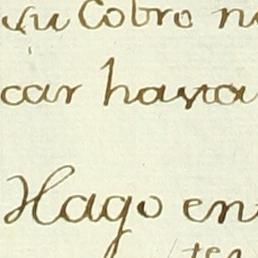 su Cobro n
car hasta
Hago en